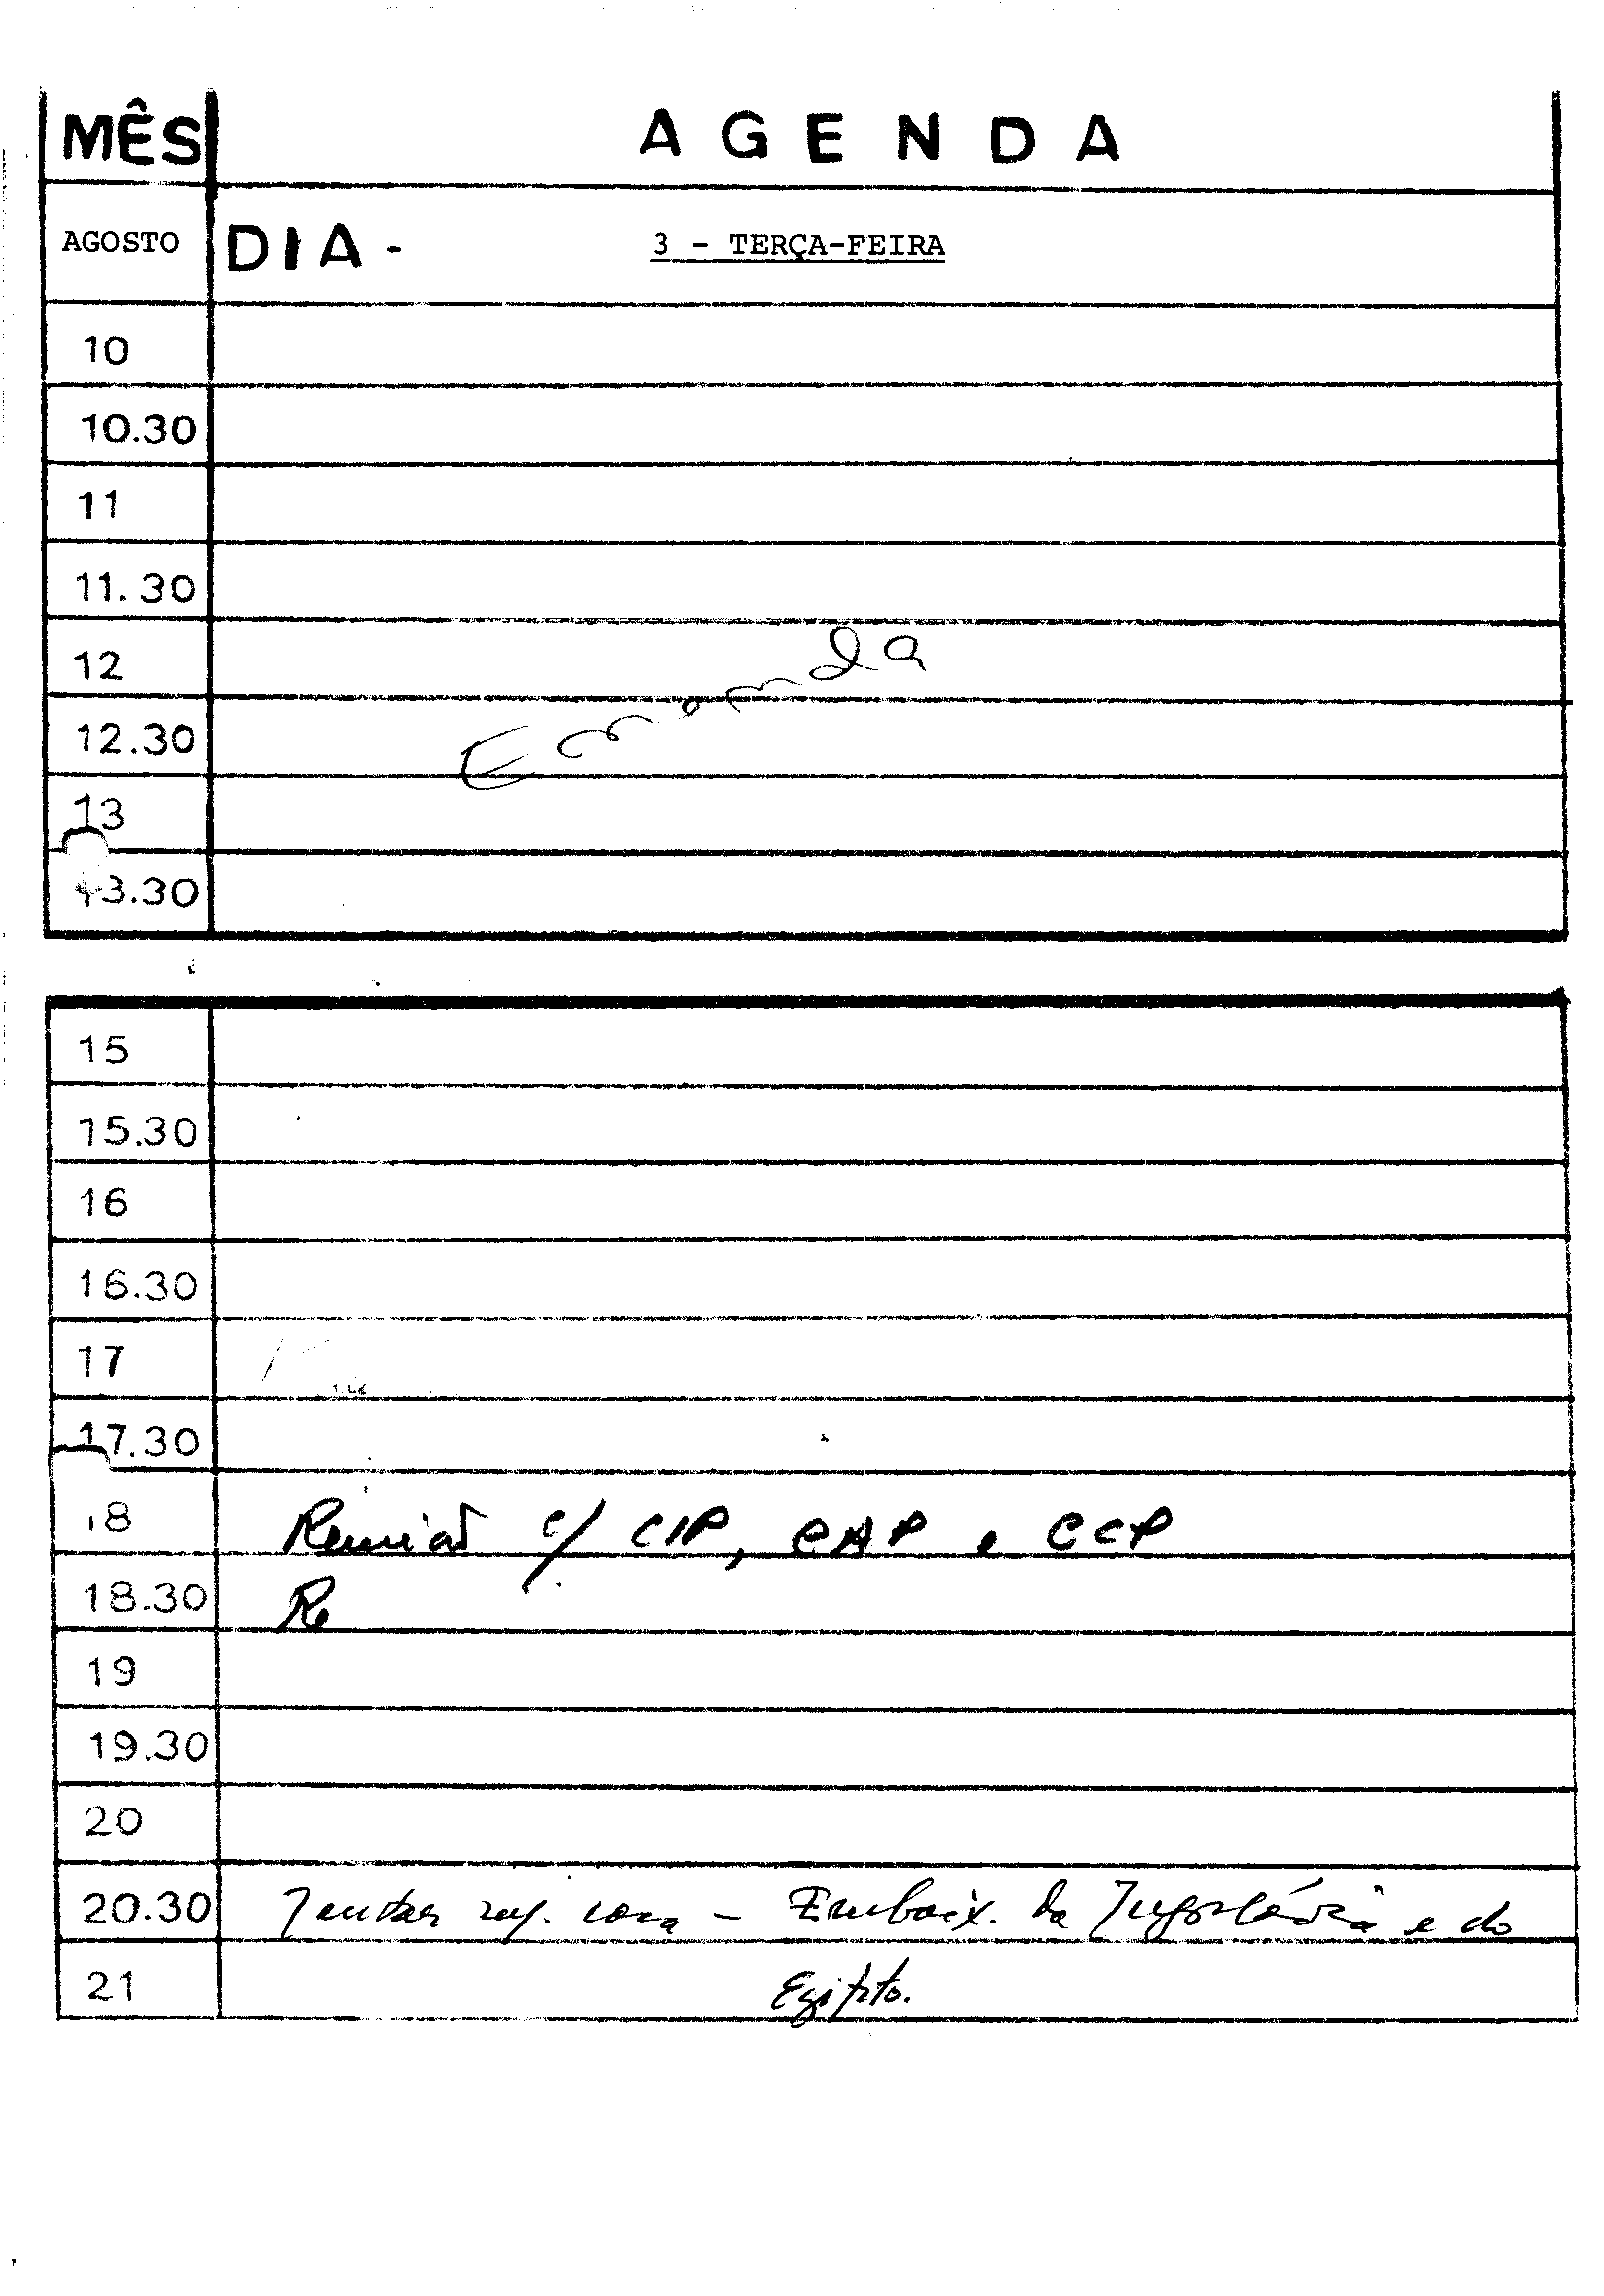 MÊS AGENDA
AGOSTO DIA - 3 - TERÇA-FEIRA
10
10.30
11
11.30
12
12.30
13
13.30
15
15.30
16
16.30
17
17.30
18 Reunião c/ CIP, CAP e CCP
18.30 Re
19
19.30
20
20.30 Jantar casa - Embaix. da Jugoslávia e do
21 Egipto.